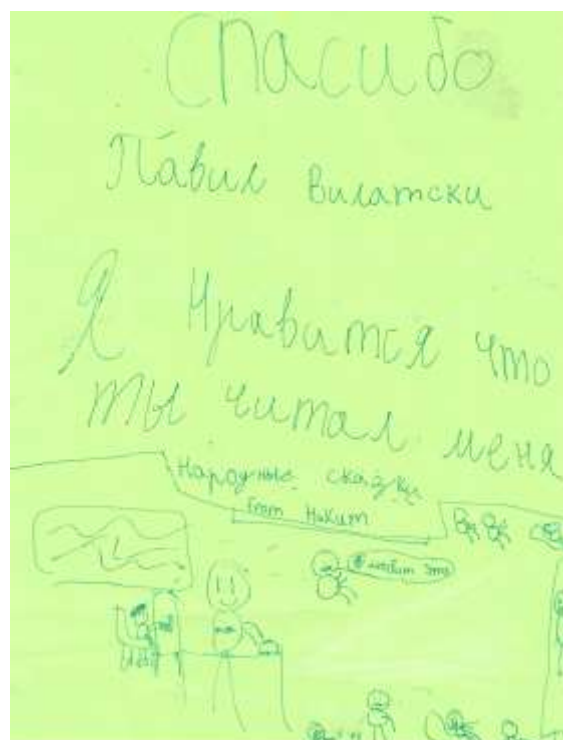 Спасибо
Павил Вилатски
Я Нравится что
ты читал меня
Народные сказки
from Никит
Я любит это